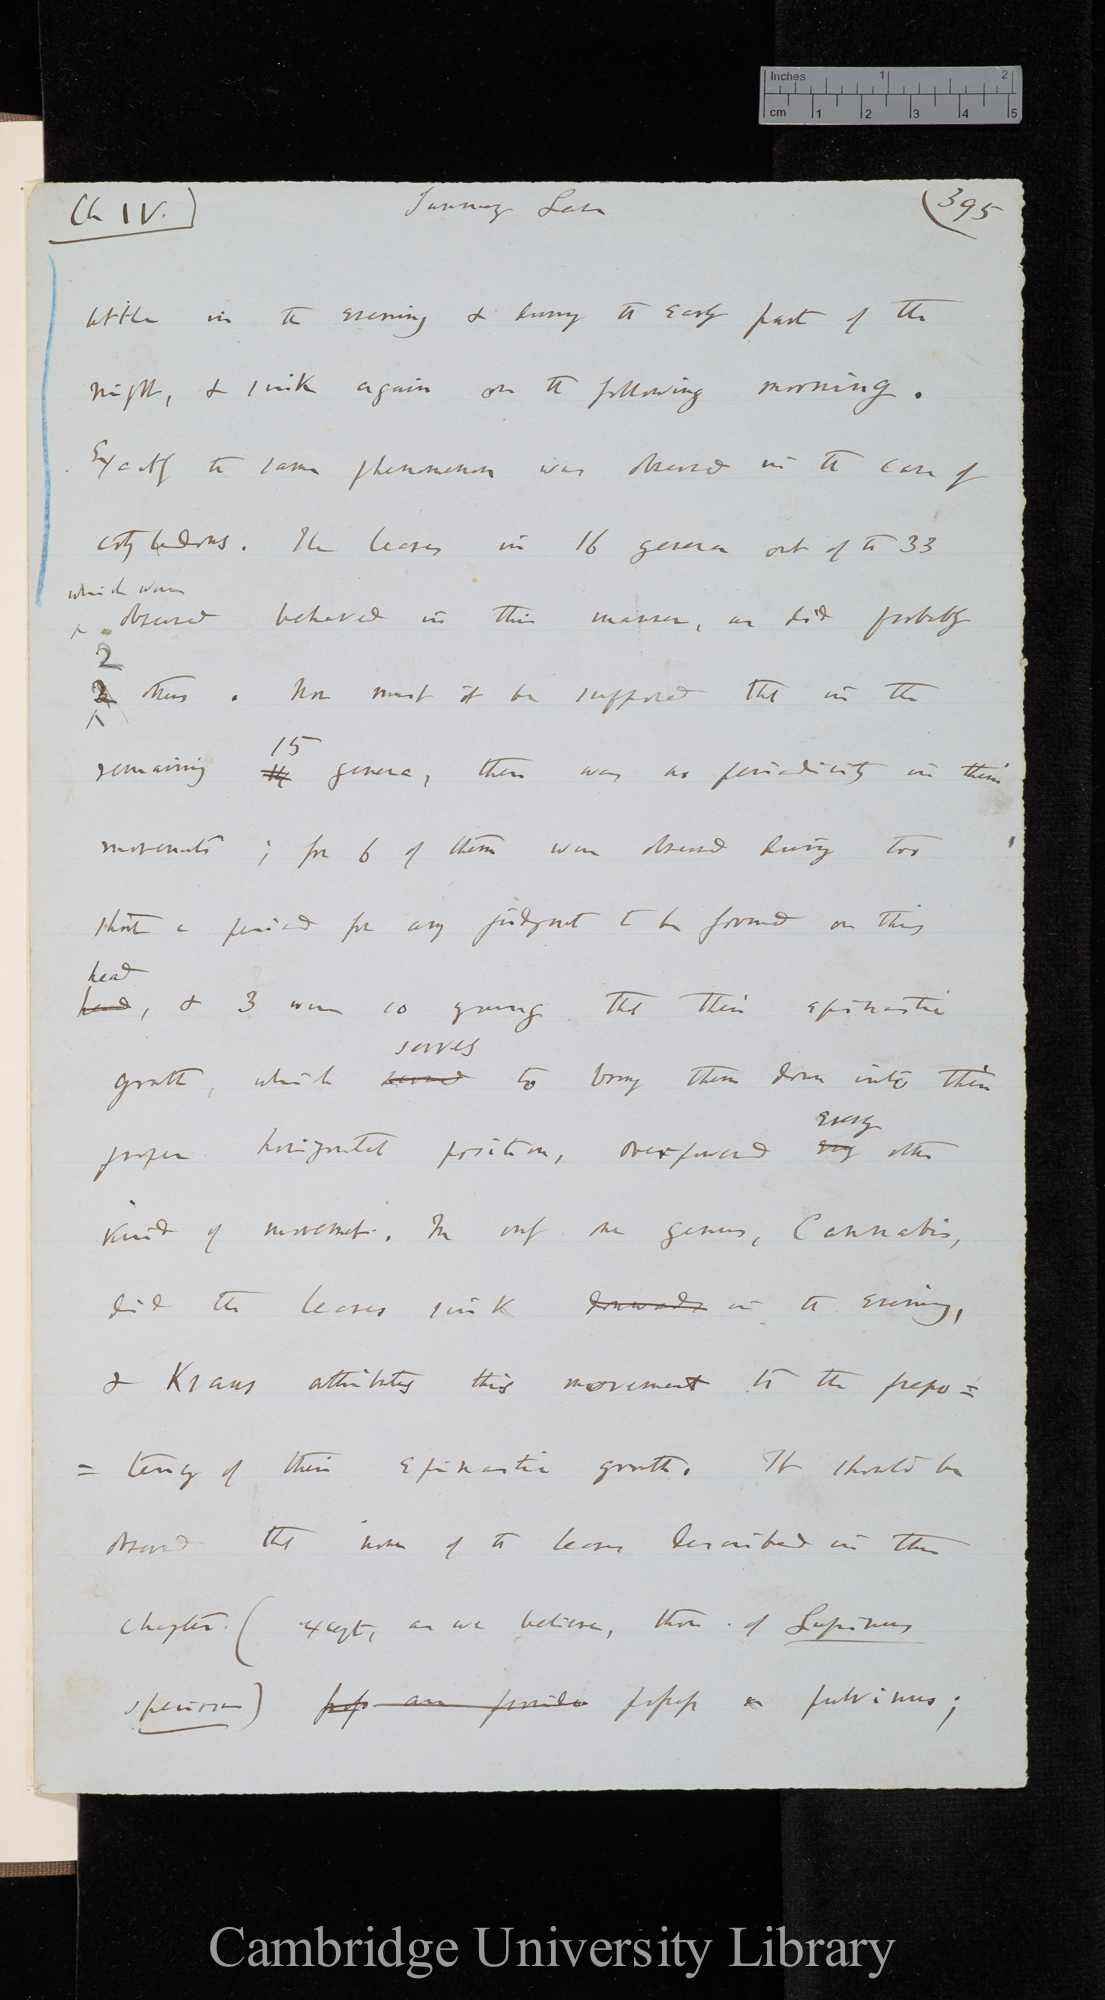 Inches 1 2
cm 1 2 3 4 5
Ch IV.] Summary Leaves (395
little in the evening & during the early part of the
night, & sink again on the following morning.
Exactly the same phenomenon was observed in the case of
cotyledons. The leaves in 16 genera out of the 33
which were
observed behaved in this manner, as did probably
2
2 others. Nor must it be supposed that in the
15
remaining genera, there was no periodicity in their
movements; for 6 of them were observed during too
short a period for any judgment to be formed on this
head
head, & 3 were so young that their epinastic
serves
growth, which served to bring them down into their
every
proper horizontal position, overpowered every other
kind of movement. In only one genus, Cannabis,
did the leaves sink downwards in the evening,
& Kraus attributes this movement to the prepo=
=tency of their epinastic growth. It should be
observed that none of the leaves described in this
chapter (except, as we believe, those of Lupinus
speciosus) possess a pulvinus;
Cambridge University Library